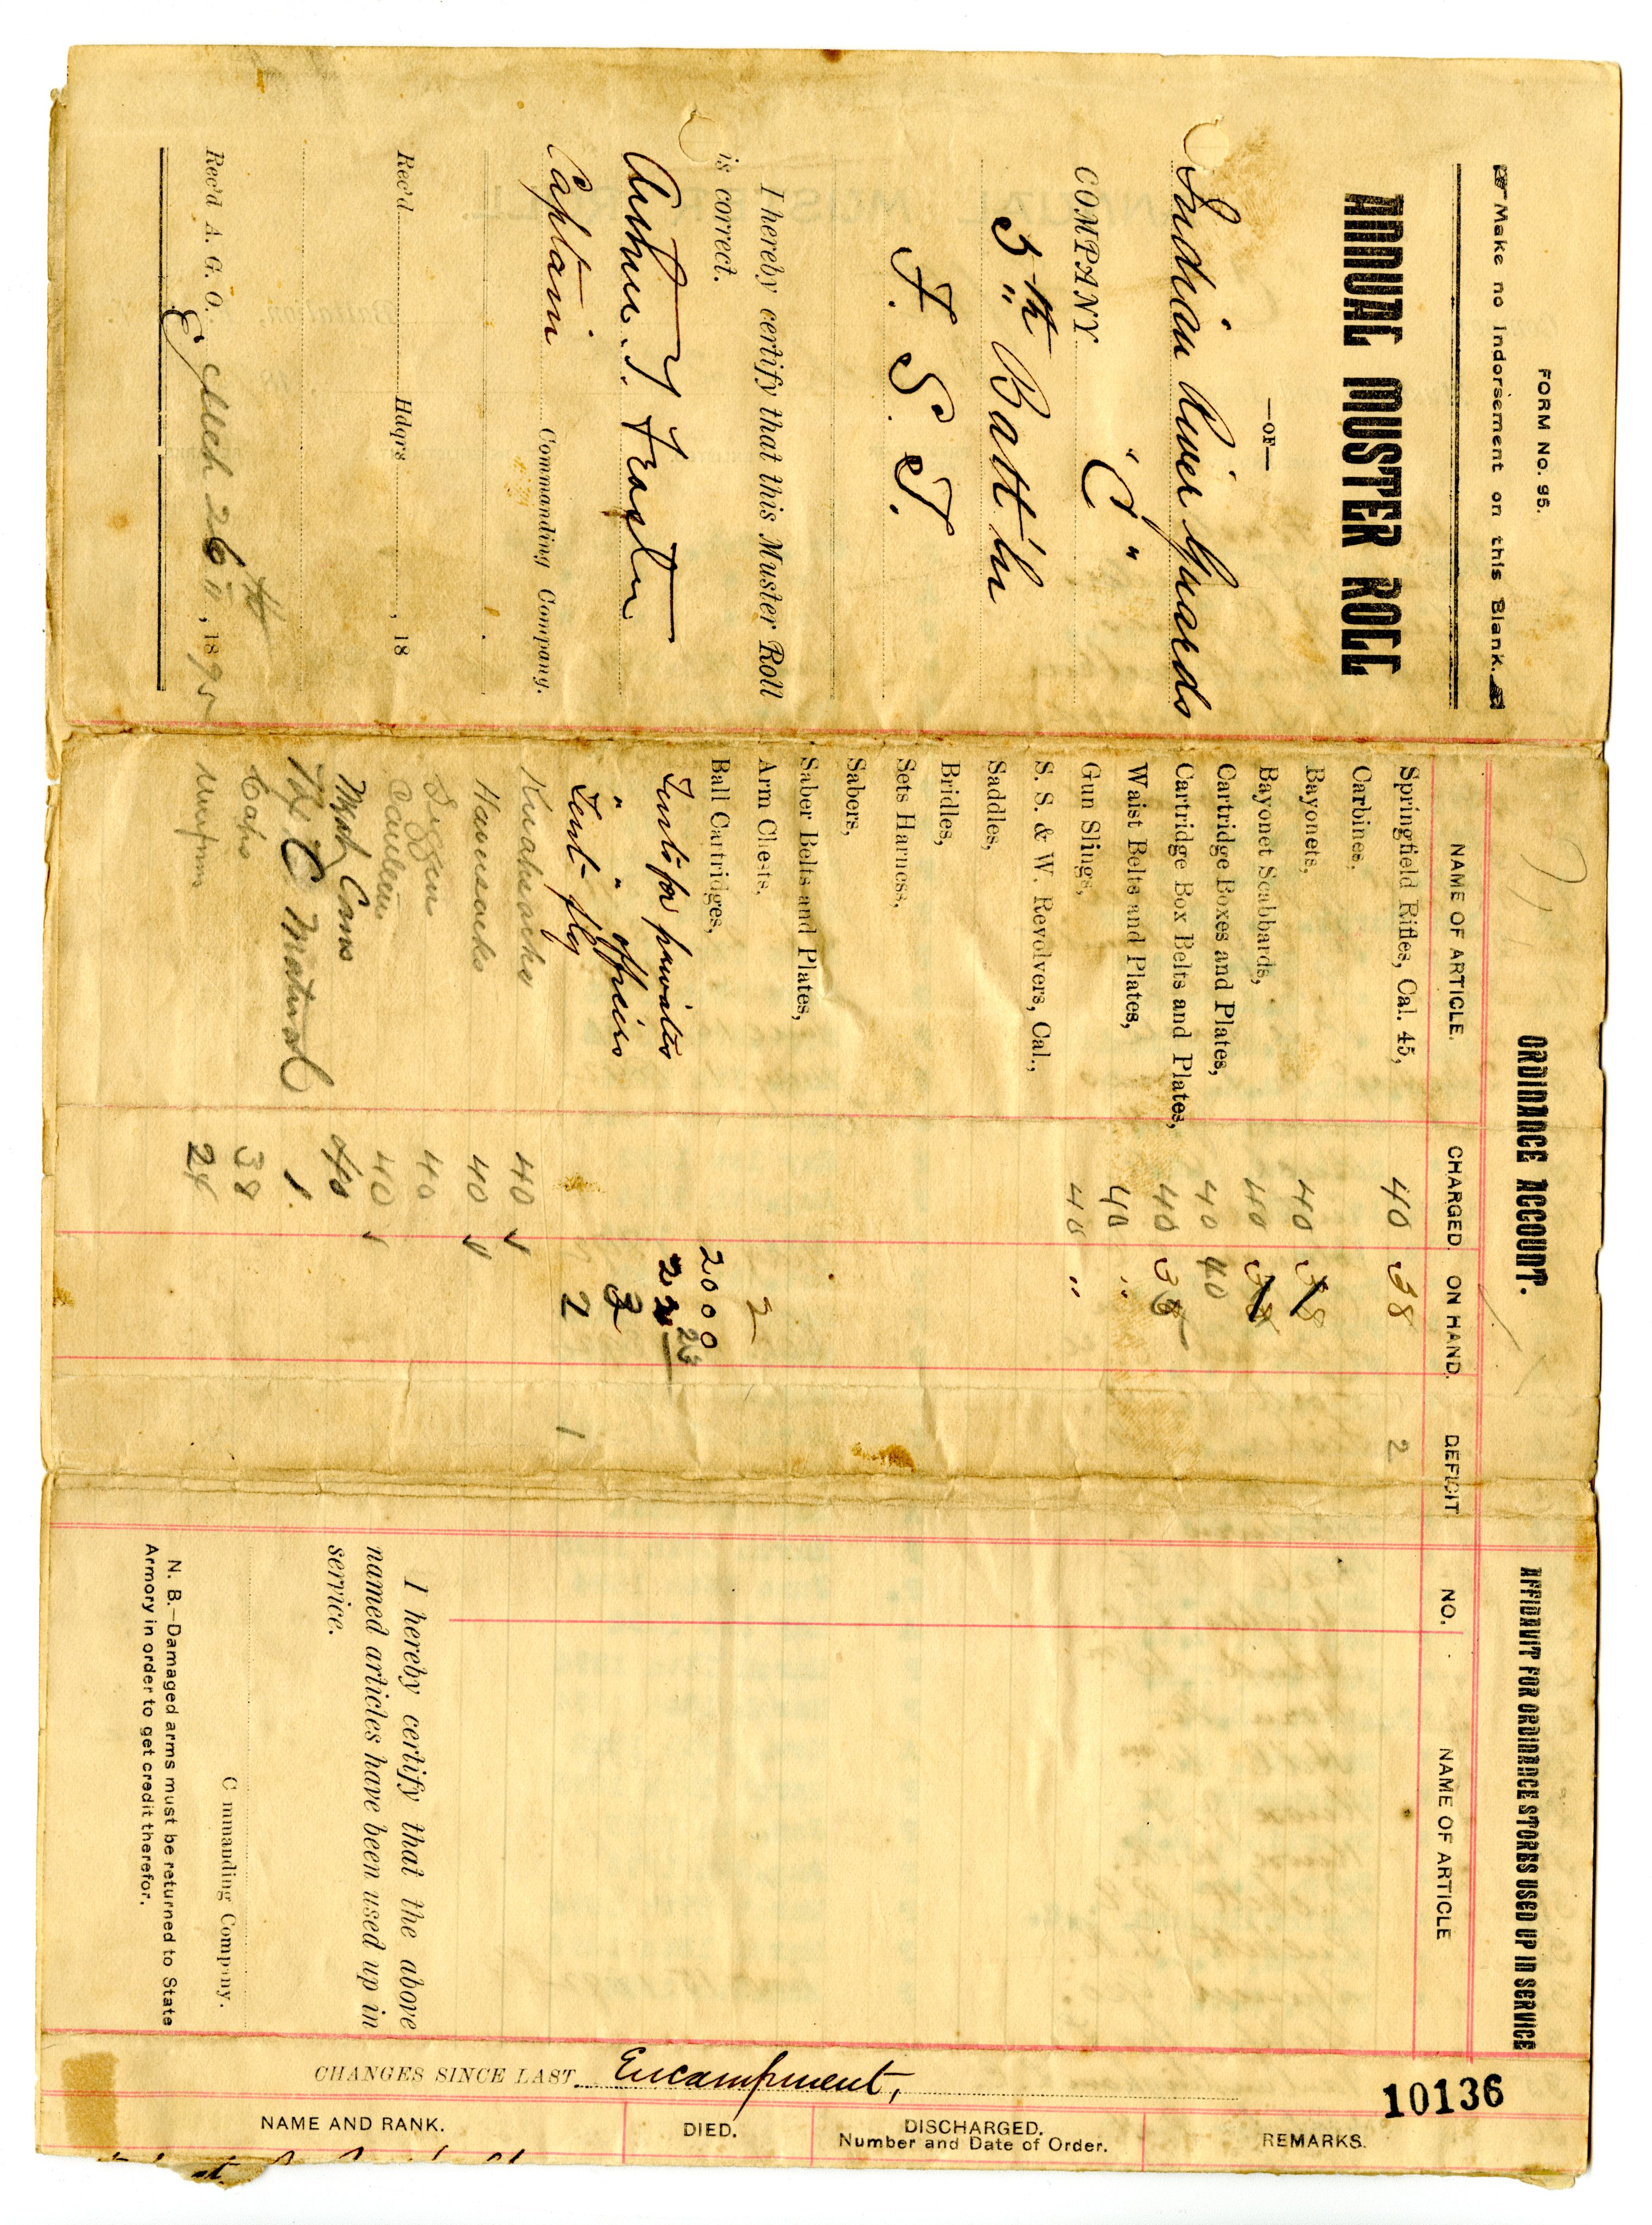 FORM NO. 95.
Make no Indorsement on this Blank.
ANNUAL MUSTER ROLL
—OF—
Indian River Guards
COMPANY "C"
5th Batt'ln
F. S. T.
I hereby certify that this Muster Roll
is correct.
Arthur F
Captain Commanding Company.
Rec'd Hdqrs , 18
Rec'd A. G. O. Mch 26 , 1895
ORDINANCE ACCOUNT.
NAME OF ARTICLE. CHARGED. ON HAND. DEFICIT
Springfield Rifles, Cal. 45, 40 38 2
Carbines,
Bayonets, 40 38
Bayonet Scabbards, 40 38
Cartridge Boxes and Plates, 40 40
Cartridge Box Belts and Plates, 40 38
Waist Belts and Plates, 40 "
Gun Slings, 40 "
S. S. & W. Revolvers, Cal.,
Saddles,
Bridles,
Sets Harness,
Sabers,
Saber Belts and Plates,
Arm Chests, 2
Ball Cartridges, 2000
Tents for privates 22 23
" " officers 2
Tent fly 2 1
Knapsacks 40 ✓
Haversacks 40 ✓
40
Canteens 40 ✓
Meat Cans 40
1
Caps 38
Uniforms 24
AFFIDAVIT FOR ORDINANCE STORES USED UP IN SERVICE
NO. NAME OF ARTICLE
I hereby certify that the above
named articles have been used up in
service.
C mmanding Company.
N. B.—Damaged arms must be returned to State
Armory in order to get credit therefor.
10136
CHANGES SINCE LAST Encampment,
NAME AND RANK. DIED. DISCHARGED. Number and Date of Order. REMARKS.